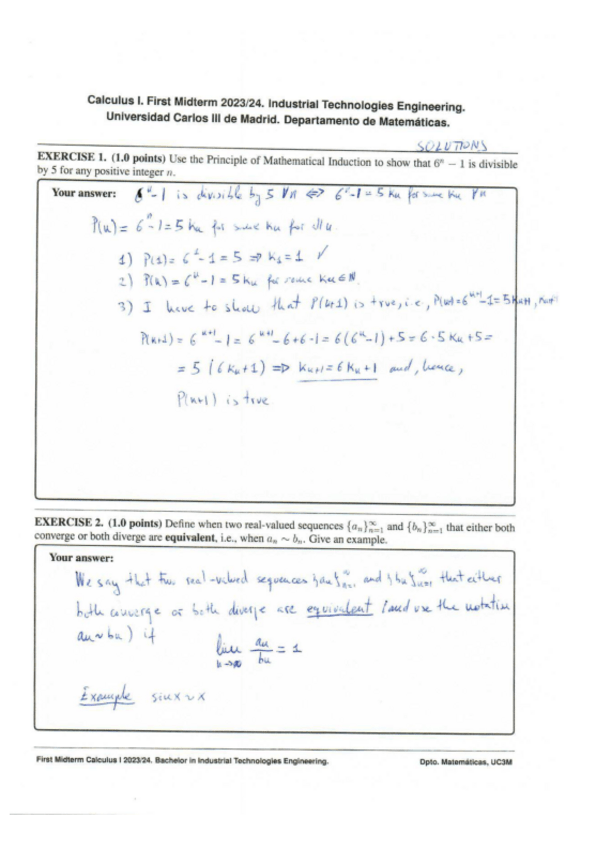 Calculus I. First Midterm 2023/24. Industrial Technologies Engineering.
Universidad Carlos III de Madrid. Departamento de Matemáticas.
SOLUTIONS
EXERCISE 1. (1.0 points) Use the Principle of Mathematical Induction to show that 6ⁿ − 1 is divisible
by 5 for any positive integer n.
Your answer: 6ⁿ-1 is divisible by 5 ∀n ⟺ 6ⁿ-1 = 5 kₙ for some kₙ ∀n
P(n) = 6ⁿ-1 = 5 kₙ for some kₙ for all n.
1) P(1) = 6¹-1 = 5 ⇒ k₁ = 1 ✓
2) P(n) = 6ⁿ-1 = 5 kₙ for some kₙ ∈ ℕ.
3) I have to show that P(n+1) is true, i.e., P(n+1) = 6ⁿ⁺¹-1 = 5 kₙ₊₁, kₙ₊₁
P(n+1) = 6ⁿ⁺¹-1 = 6ⁿ⁺¹-6+6-1 = 6(6ⁿ-1)+5 = 6·5 kₙ+5 =
= 5 (6kₙ+1) ⇒ kₙ₊₁ = 6kₙ+1 and, hence,
P(n+1) is true
EXERCISE 2. (1.0 points) Define when two real-valued sequences {aₙ}∞ₙ₌₁ and {bₙ}∞ₙ₌₁ that either both
converge or both diverge are equivalent, i.e., when aₙ ∼ bₙ. Give an example.
Your answer:
We say that two real-valued sequences {aₙ}∞ₙ₌₁ and {bₙ}∞ₙ₌₁ that either
both converge or both diverge are equivalent (and use the notation
aₙ~bₙ) if
lim n→∞ aₙ/bₙ = 1
Example sinx ~ x
First Midterm Calculus I 2023/24. Bachelor in Industrial Technologies Engineering.
Dpto. Matemáticas, UC3M